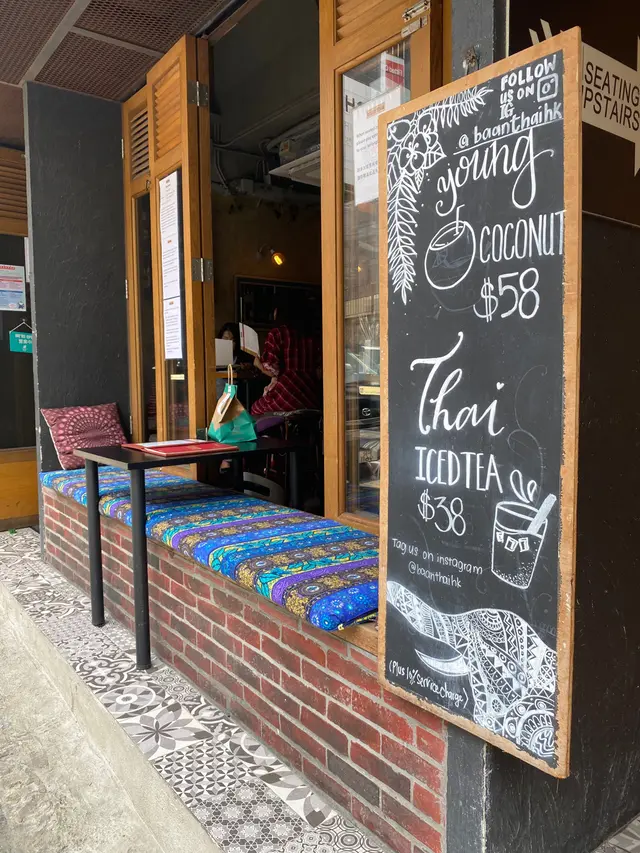 FOLLOW
US ON
IG
@baanthaihk
young
COCONUT
$58
Thai
ICED TEA
$38
Tag us on instagram
@baanthaihk
(Plus 10% service charge)
SEATING
UPSTAIRS